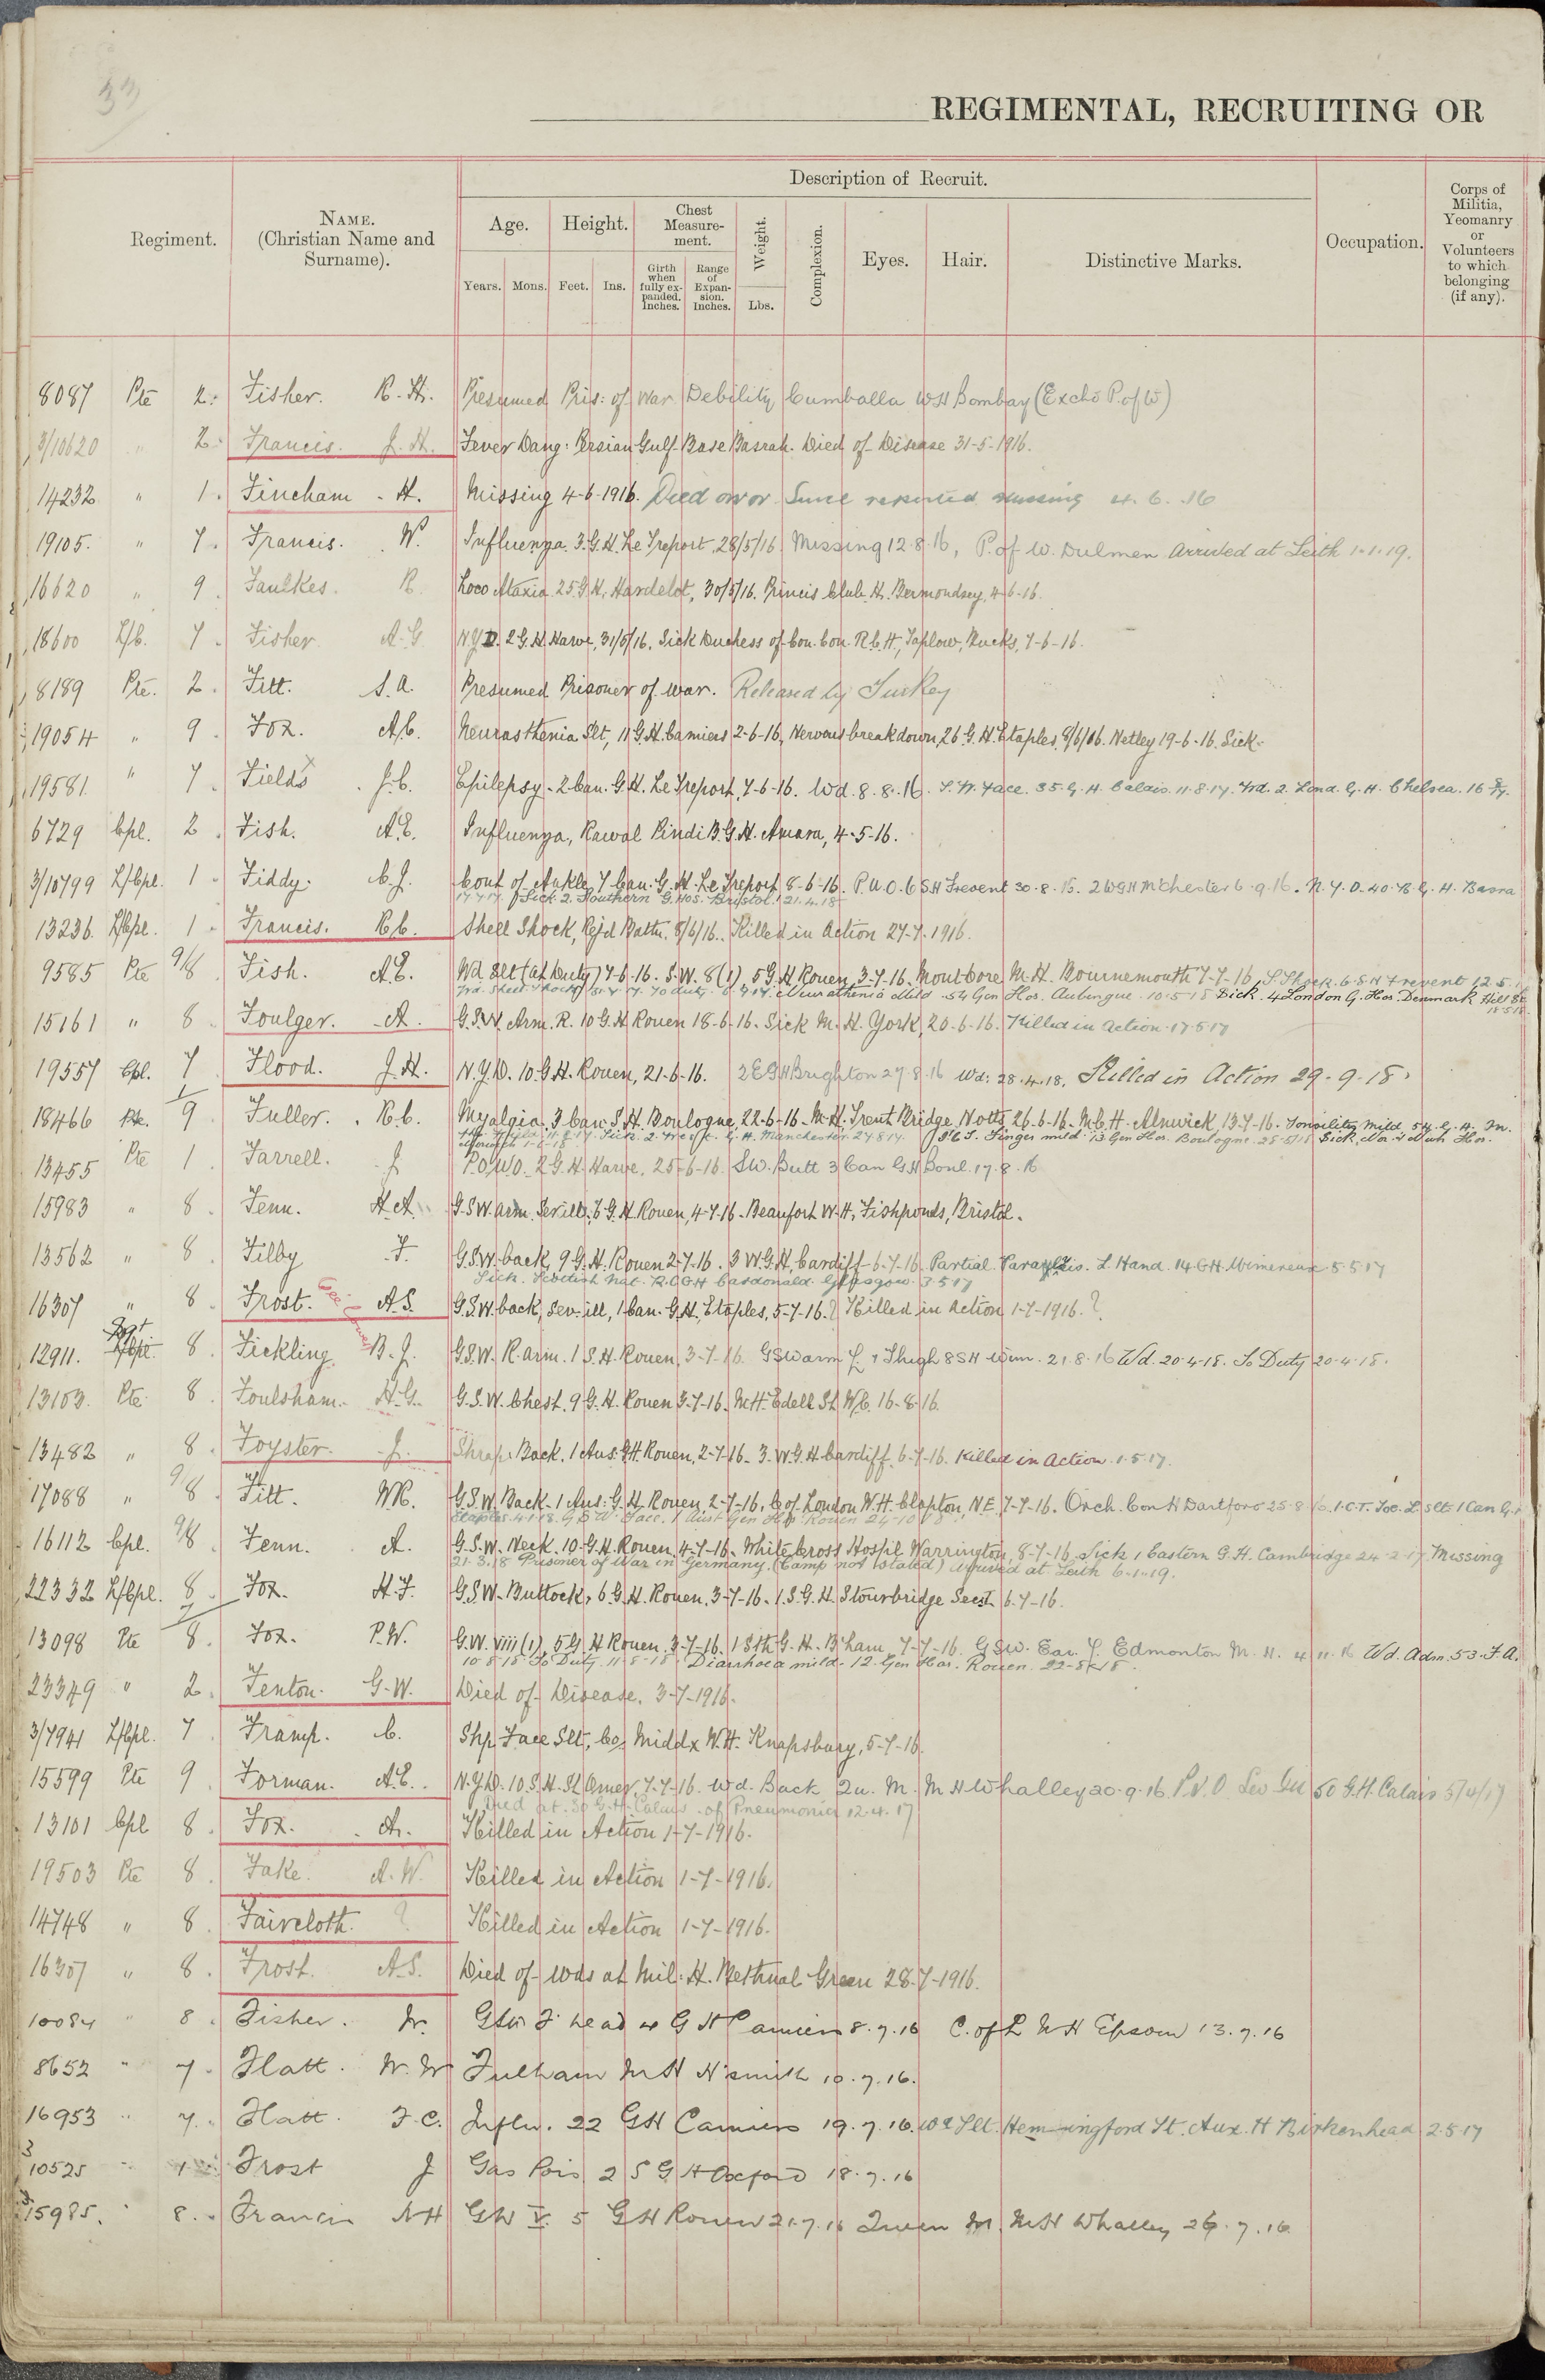 33
REGIMENTAL, RECRUITING OR
Regiment.
NAME.
(Christian Name and
Surname).
Description of Recruit.
Age.
Years.
Mons.
Height.
Feet.
Ins.
Chest
Measure-
ment.
Girth
when
fully ex-
panded.
Inches.
Range
of
Expan-
sion.
Inches.
Weight.
Lbs.
Complexion.
Eyes.
Hair.
Distinctive Marks.
Occupation.
Corps of
Militia,
Yeomanry
or
Volunteers
to which
belonging
(if any).
8087 Pte 2. Fisher. R. H. Presumed Pris: of War Debility Cumballa W H Bombay (Exchd P. of W)
3/10620 " 2. Francis. J. H. Fever Dang: Persian Gulf Base Basrah. Died of Disease 31-5-1916.
14232 " 1. Fincham. H. Missing 4-6-1916. Died on or Since reported missing 4. 6. 16
19105. " 7. Francis. W. Influenza. 3. G. H. Le Treport. 28/5/16 Missing 12.8.16, P. of W. Dulmen Arrived at Leith 1.1.19.
16620 " 9. Faulkes. R. Loco Ataxia. 25. G H. Hardelot, 30/5/16. Princis Club. H. Bermondsey, 4-6-16.
18600 L/C. 7. Fisher A. G. N.Y.D. 2 G. H. Havre, 31/5/16. Sick Duchess of Con. Con. R. C. H, Taplow, Bucks, 7-6-16.
8189 Pte. 2. Fitt. S. A. Presumed Prisoner of War. Released by Turkey
19054 " 9. Fox. A. C. Neurasthenia Slt, 11 G. H. Camiers 2-6-16, Nervous breakdown, 26 G. H. Etaples, 8/6/16. Netley 19-6-16. Sick.
19581. " 7. Fields. J. C. Epilepsy. 2 Can. G. H. Le Treport, 7-6-16. Wd. 8. 8. 16. S. W. Face. 35. G. H. Calais. 11.8.17. Trd. 2. Lond. G. H. Chelsea. 16
6729 Cpl. 2. Fish. A. E. Influenza, Rawal Pindi B. G. H. Amara, 4-5-16.
3/10799 L/Cpl. 1. Fiddy. C. J. Cont of Ankle, 7 Can. G. H. Le Treport 8-6-16. P. U. O. 6 S H Frevent 30. 8. 16. 2 W G H Mchester 6.9.16. N. Y. D. 40. B. G. H. Basra
Sick. 2. Southern G. Hos. Bristol. 21.4.18
13236. L/Cpl. 1. Francis. R. C. Shell Shock, Rej'd Battn. 8/6/16. Killed in Action 27-7. 1916.
9585 Pte 9/8 Fish. A. E. Wd Slt (at Duty) 7-6-16. S. W. 8 (1) 5 G H Rouen, 3-7-16. Mont Dore M. H. Bournemouth 7-7-16, S. Shock. 6. S. H Frevent 12.5.
Neurasthenia Mild. 54 Gen Hos. Aubengue. 10.5.18 Sick. 4 London G. Hos. Denmark Hill SE
18.5.18.
15161 " 8. Foulger. A. G.S.W. Arm. R. 10 G. H Rouen 18-6-16. Sick M. H. York, 20-6-16. Killed in Action. 17.5.17
19557 Cpl. 7 Flood. J. H. N.Y.D. 10. G. H. Rouen, 21-6-16. 2 E G H Brighton 27 8.16 Wd: 28.4.18. Killed in Action 29-9-18.
18466 Pte. 9. Fuller. R. C. Myalgia, 3 Can. S. H. Boulogne, 22-6-16. M. H. Trent Bridge, Notts, 26-6-16. M. C. H. Alnwick, 13-7-16. Tonsilitis Mild. 54. G. H.
I. C. T. Finger mild. 13 Gen Hos. Boulogne. 25.5.18 Sick.
13455 Pte 1. Farrell. J P. O. W O. 2 G. H. Havre. 25-6-16. S W. Butt 3 Can G H Boul. 17. 8. 16
15983 " 8. Fenn. H. A. G.S.W. Arm. Sev: ill, 6. G. H. Rouen, 4-7-16. Beaufort W. H, Fishponds, Bristol.
13562 " 8. Filby F. G.S.W. back, 9 G. H. Rouen 2-7-16. 3 W. G. H. Cardiff 6-7-16. Partial Paralysis. L Hand. 14 G H. Wimereux 5.5.17
Sick. Scottish Nat. R. C G H Cardonald. Glasgow. 3.5.17
16307 " 8. Frost. A. S. G.S.W. back, Sev. ill, 1 Can. G. H. Etaples, 5-7-16. ? Killed in Action 1-7-1916. ?
See lower
12911. Sgt L/Cpl. 8. Fickling B. J. G.S.W. R. arm. 1 S. H. Rouen, 3-7-16. G S W arm L & Thigh 8 S H Wim. 21.8.16 Wd. 20.4.18. To Duty 20.4.18.
13103. Pte 8. Foulsham. H. G. G. S. W. Chest. 9 G. H. Rouen 3-7-16. M. H. Edell St W. C. 16-8-16.
13482 " 8. Foyster. J. Shrap. Back. 1 Aus. G. H. Rouen, 2-7-16. 3. W. G. H Cardiff, 6-7-16. Killed in action. 1.5.17.
17088 " 9/8. Fitt. W. R. G.S.W. Back. 1 Aus. G. H. Rouen, 2-7-16. C. of London W. H. Clapton, N.E, 7-7-16. Orch. Con H Dartford 25.8.16. I.C.T. Toe. L. Slt. 1 Can G.
Etaples. 4.1.18. G S W. Face. 1 Aust Gen Hos Rouen 24-10
16112 Cpl. 9/8. Fenn. A. G.S.W. Neck. 10. G. H. Rouen, 4-7-16. White Cross Hospil Warrington, 8-7-16. Sick, 1 Eastern G. H. Cambridge 24-2-17 Missing
21.3.18 Prisoner of War in Germany. (Camp not stated) Arrived at Leith 6.1.19.
22332 L/Cpl. 8. Fox. H. F. G.S.W. Buttock, 6 G. H. Rouen. 3-7-16. 1. S. G. H. Stourbridge Sect. 6-7-16.
13098 Pte 8. Fox. P. W. G. W. VIII (1). 5 G. H Rouen. 3-7-16. 1 Sth G. H. B'ham, 7-7-16. G S W. Ear. Edmonton M. H. 4. 11. 16 Wd. Adm. 53. F. A.
10 8 18. To Duty. 11-8-18. Diarrhoea mild. 12. Gen Hos. Rouen. 22-8-18.
23349 " 2. Fenton. G. W. Died of Disease. 3-7-1916.
3/7941 L/Cpl. 7 Framp. C. Shp Face Slt, Co, Middx W. H. Knapsbury, 5-7-16.
15599 Pte 9. Forman. A. E. N.Y.D. 10. S. H. St Omer, 7-7-16. Wd. Back Qu. M. M H Whalley 20.9.16 P. U. O Sev 50 G. H. Calais 5/4/17
Died at 30 G. H. Calais of Pneumonia 12.4.17
13101 Cpl 8. Fox. A. Killed in Action 1-7-1916.
19503 Pte 8. Fake. A. W. Killed in Action 1-7-1916.
14748 " 8. Faircloth. ? Killed in Action 1-7-1916.
16307 " 8. Frost. A. S. Died of Wds at Mil: H. Bethnal Green 28-7-1916.
10084 " 8. Fisher. W. G S W F head 4 G H Camiers 8.7.16 C. of L W H Epsom 13.7.16
8652 " 7. Flatt. W. W Fulham M H H'smith 10.7.16.
16953 " 7. Flatt. F. C. Influ. 22 G H Camiers 19.7.16. Wd Slt. Hemingford St. Aux. H Birkenhead 2.5.17
3/10525 " 1 Frost J Gas Pois 2 S G H Oxford 18.7.16
3/15985. " 8. Francis N H G W V. 5 G H Rouen 21.7.16 Queen M. M H Whalley 26.7.16